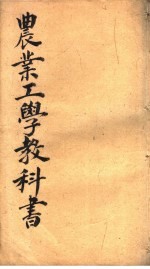 農業工學教科書